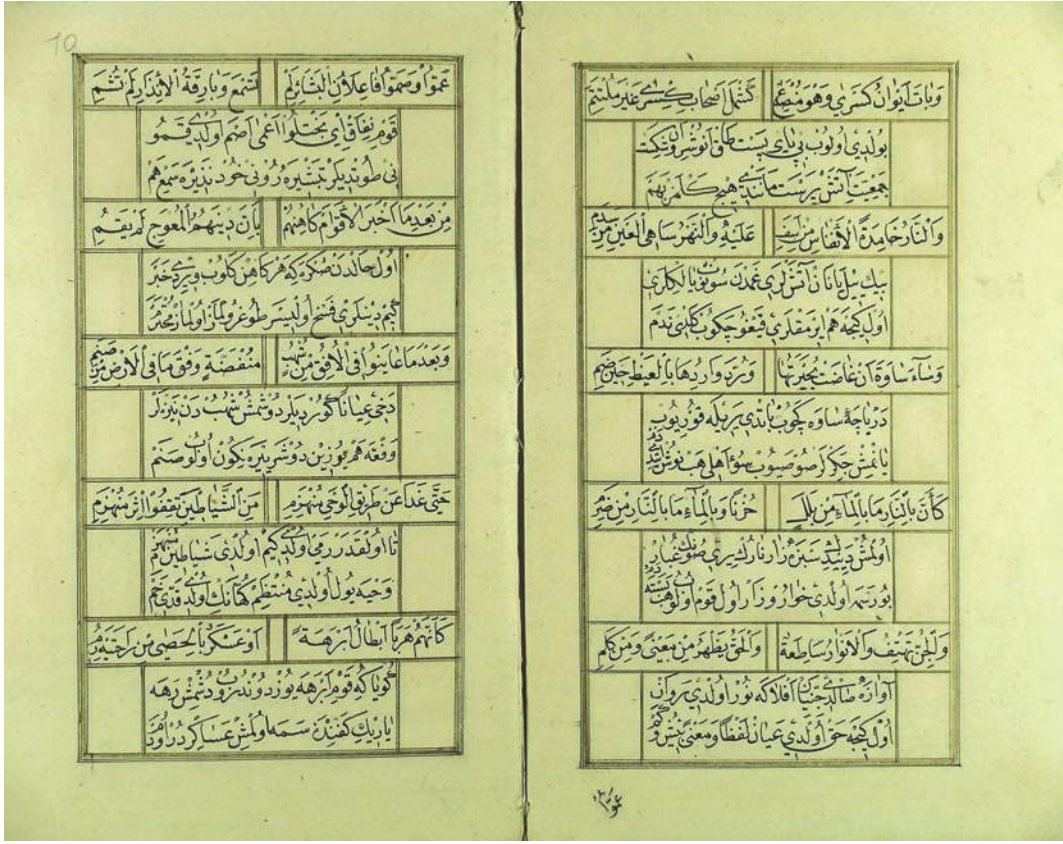 وَبَاتَ اَيْوَانُ كَسْرٰي وَهُوَ مُنْصَدِعٌ كَشَمْلِ اَصْحَابِ كِسْرٰي غَيْرَ مُلْتَئِمِ
بولدی اولوب بی پای پست طاق انوشروان شکست
جمعیت آتش پرست مانندی هیچ کلمز بهم
وَالنَّارُ خَامِدَةُ الْاَنْفَاسِ مِنْ اَسَفٍ عَلَيْهِ وَالنَّهْرُ سَاهِي الْعَيْنِ مِنْ سَدَمِ
بیك ییل یانان آتشلری غمدن سونوب
اول کیجه هم ایرمقلری قیغو چکوب ندم
وَسَاءَ سَاوَةَ اَنْ غَاضَتْ بُحَيْرَتُهَا وَرُدَّ وَارِدُهَا بِالْغَيْظِ حِينَ ظَمِ
دریاچهٔ ساوه چکوب یاندی یریله قوریوب
یانمش جکرلر صوصیوب اهلی هب نوش ایتدی دم
كَأَنَّ بِالنَّارِ مَا بِالْمَاءِ مِنْ بَلَلٍ حُزْنًا وَبِالْمَاءِ مَا بِالنَّارِ مِنْ ضَرَمِ
اولمش سبزه زار نارك یری صونك غبار
بو رسمه اولدی خوار و زار اول قوم اولوب
وَالْجِنُّ تَهْتِفُ وَالْاَنْوَارُ سَاطِعَةٌ وَالْحَقُّ يَظْهَرُ مِنْ مَعْنًي وَمِنْ كَلِمِ
آوازه صالدی جنیان افلاکه نور اولدی روان
اول کیجه حق اولدی عیان لفظاً ومعنی بیش وکم
عموا و
10
عَمُوا وَصَمُّوا فَاِعْلَانُ الْبَشَائِرِ لَمْ تُسْمَعْ وَبَارِقَةُ الْاِنْذَارِ لَمْ تُشَمِ
قوم نفاق اعمی اصم اولدی قمو
نی طویدیلر تبشیره رونی خود نذیره سمع هم
مِنْ بَعْدِ مَا اَخْبَرَ الْاَقْوَامَ كَاهِنُهُمْ بِاَنَّ دِينَهُمُ الْمُعْوَجَّ لَمْ يَقُمِ
اول حالدن صکره که هر کاهن کلوب ویردی خبر
کیم دینلری فسخ اولیسر طوغرولماز اولماز محترم
وَبَعْدَ مَا عَايَنُوا فِي الْاُفْقِ مِنْ شُهُبٍ مُنْقَضَّةٍ وَفْقَ مَا فِي الْاَرْضِ مِنْ صَنَمِ
دخی عیاناً کوردیلر دوشمش شهب دن
وفقه هم یوزین دوشر یره نکون اولوب صنم
حَتّٰي غَدَا عَنْ طَرِيقِ الْوَحْيِ مُنْهَزِمٌ مِنَ الشَّيَاطِينِ يَقْفُوا اِثْرَ مُنْهَزِمِ
تا اولقدر رمی اولدی کیم اولدی شیاطین منهزم
وحیه یول اولدی منتظم کهانك اولدی قدی خم
كَاَنَّهُمْ هَرَبًا اَبْطَالُ اَبْرَهَةٍ اَوْ عَسْكَرٌ بِالْحَصٰي مِنْ رَاحَتَيْهِ رُمِ
گویا که قوم ابرهه یوز دوندروب دوشمش رهه
یا ریك کفندن سمه اولمش عساکر